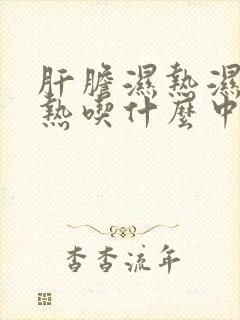 肝膽濕熱濕
熱喫什麼中
杳杳流年